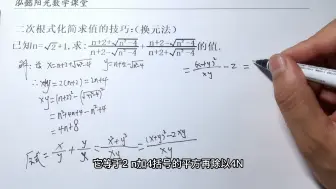 泓懿阳光数学课堂
二次根式化简求值的技巧:(换元法)
已知n=√2+1,求: (n+2+√(n²-4))/(n+2-√(n²-4)) + (n+2-√(n²-4))/(n+2+√(n²-4)) 的值.
x+y=2(n+2)=2n+4
xy=
=n²+4n+4-n²+4
=4n+8
原式= x/y + y/x = (x²+y²)/xy = ((x+y)²-2xy)/xy
= (x+y)²/xy -2 =
它等于2 n加4括号的平方再除以4N